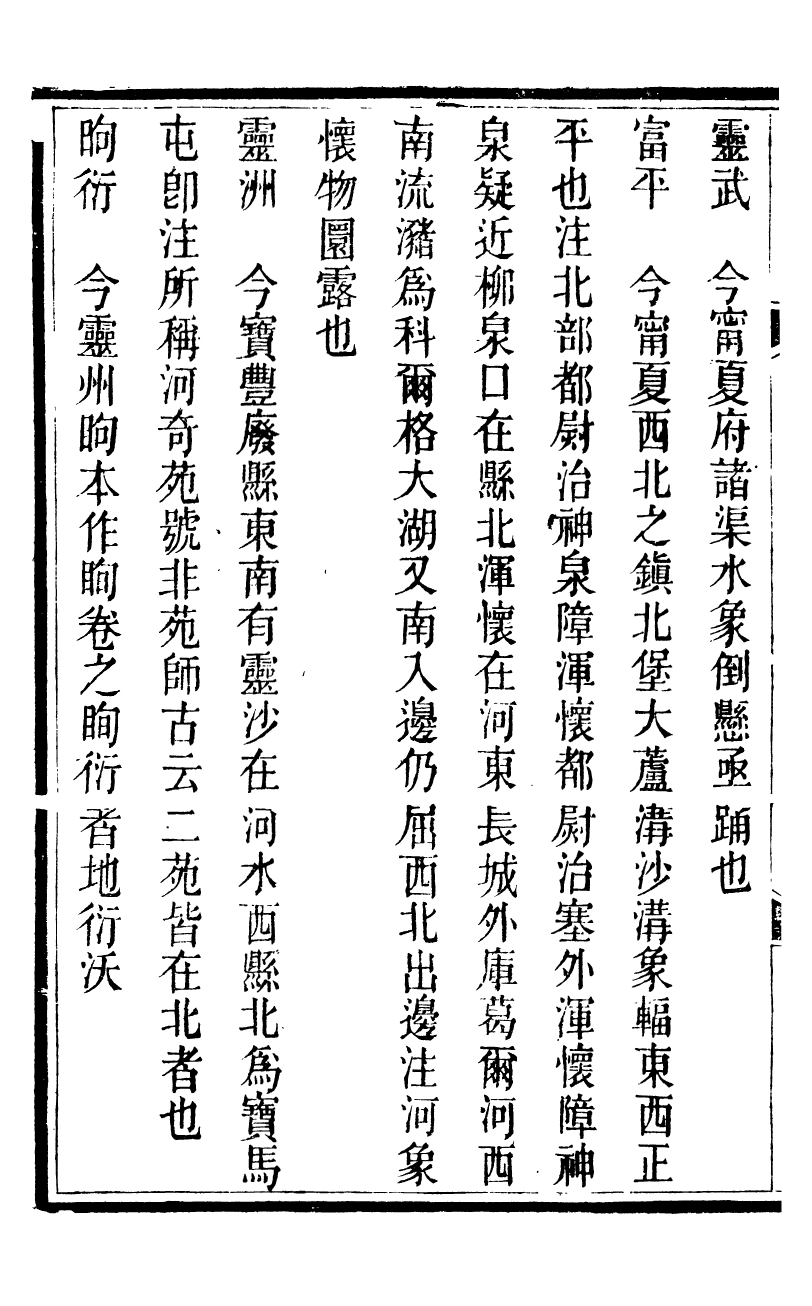 靈武　今甯夏府諸渠水象倒懸亟踊也
富平　今甯夏西北之鎮北堡大蘆溝沙溝象輻東西正
平也注北部都尉治神泉障渾懷都尉治塞外渾懷障神
泉疑近柳泉口在縣北渾懷在河東長城外庫葛爾河西
南流瀦爲科爾格大湖又南入邊仍屈西北出邊注河象
懷物圜露也
靈洲　今寶豐廢縣東南有靈沙在河水西縣北爲寶馬
屯卽注所稱河奇苑號非苑師古云二苑皆在北者也
昫衍　今靈州昫本作眗卷之眴衍者地衍沃